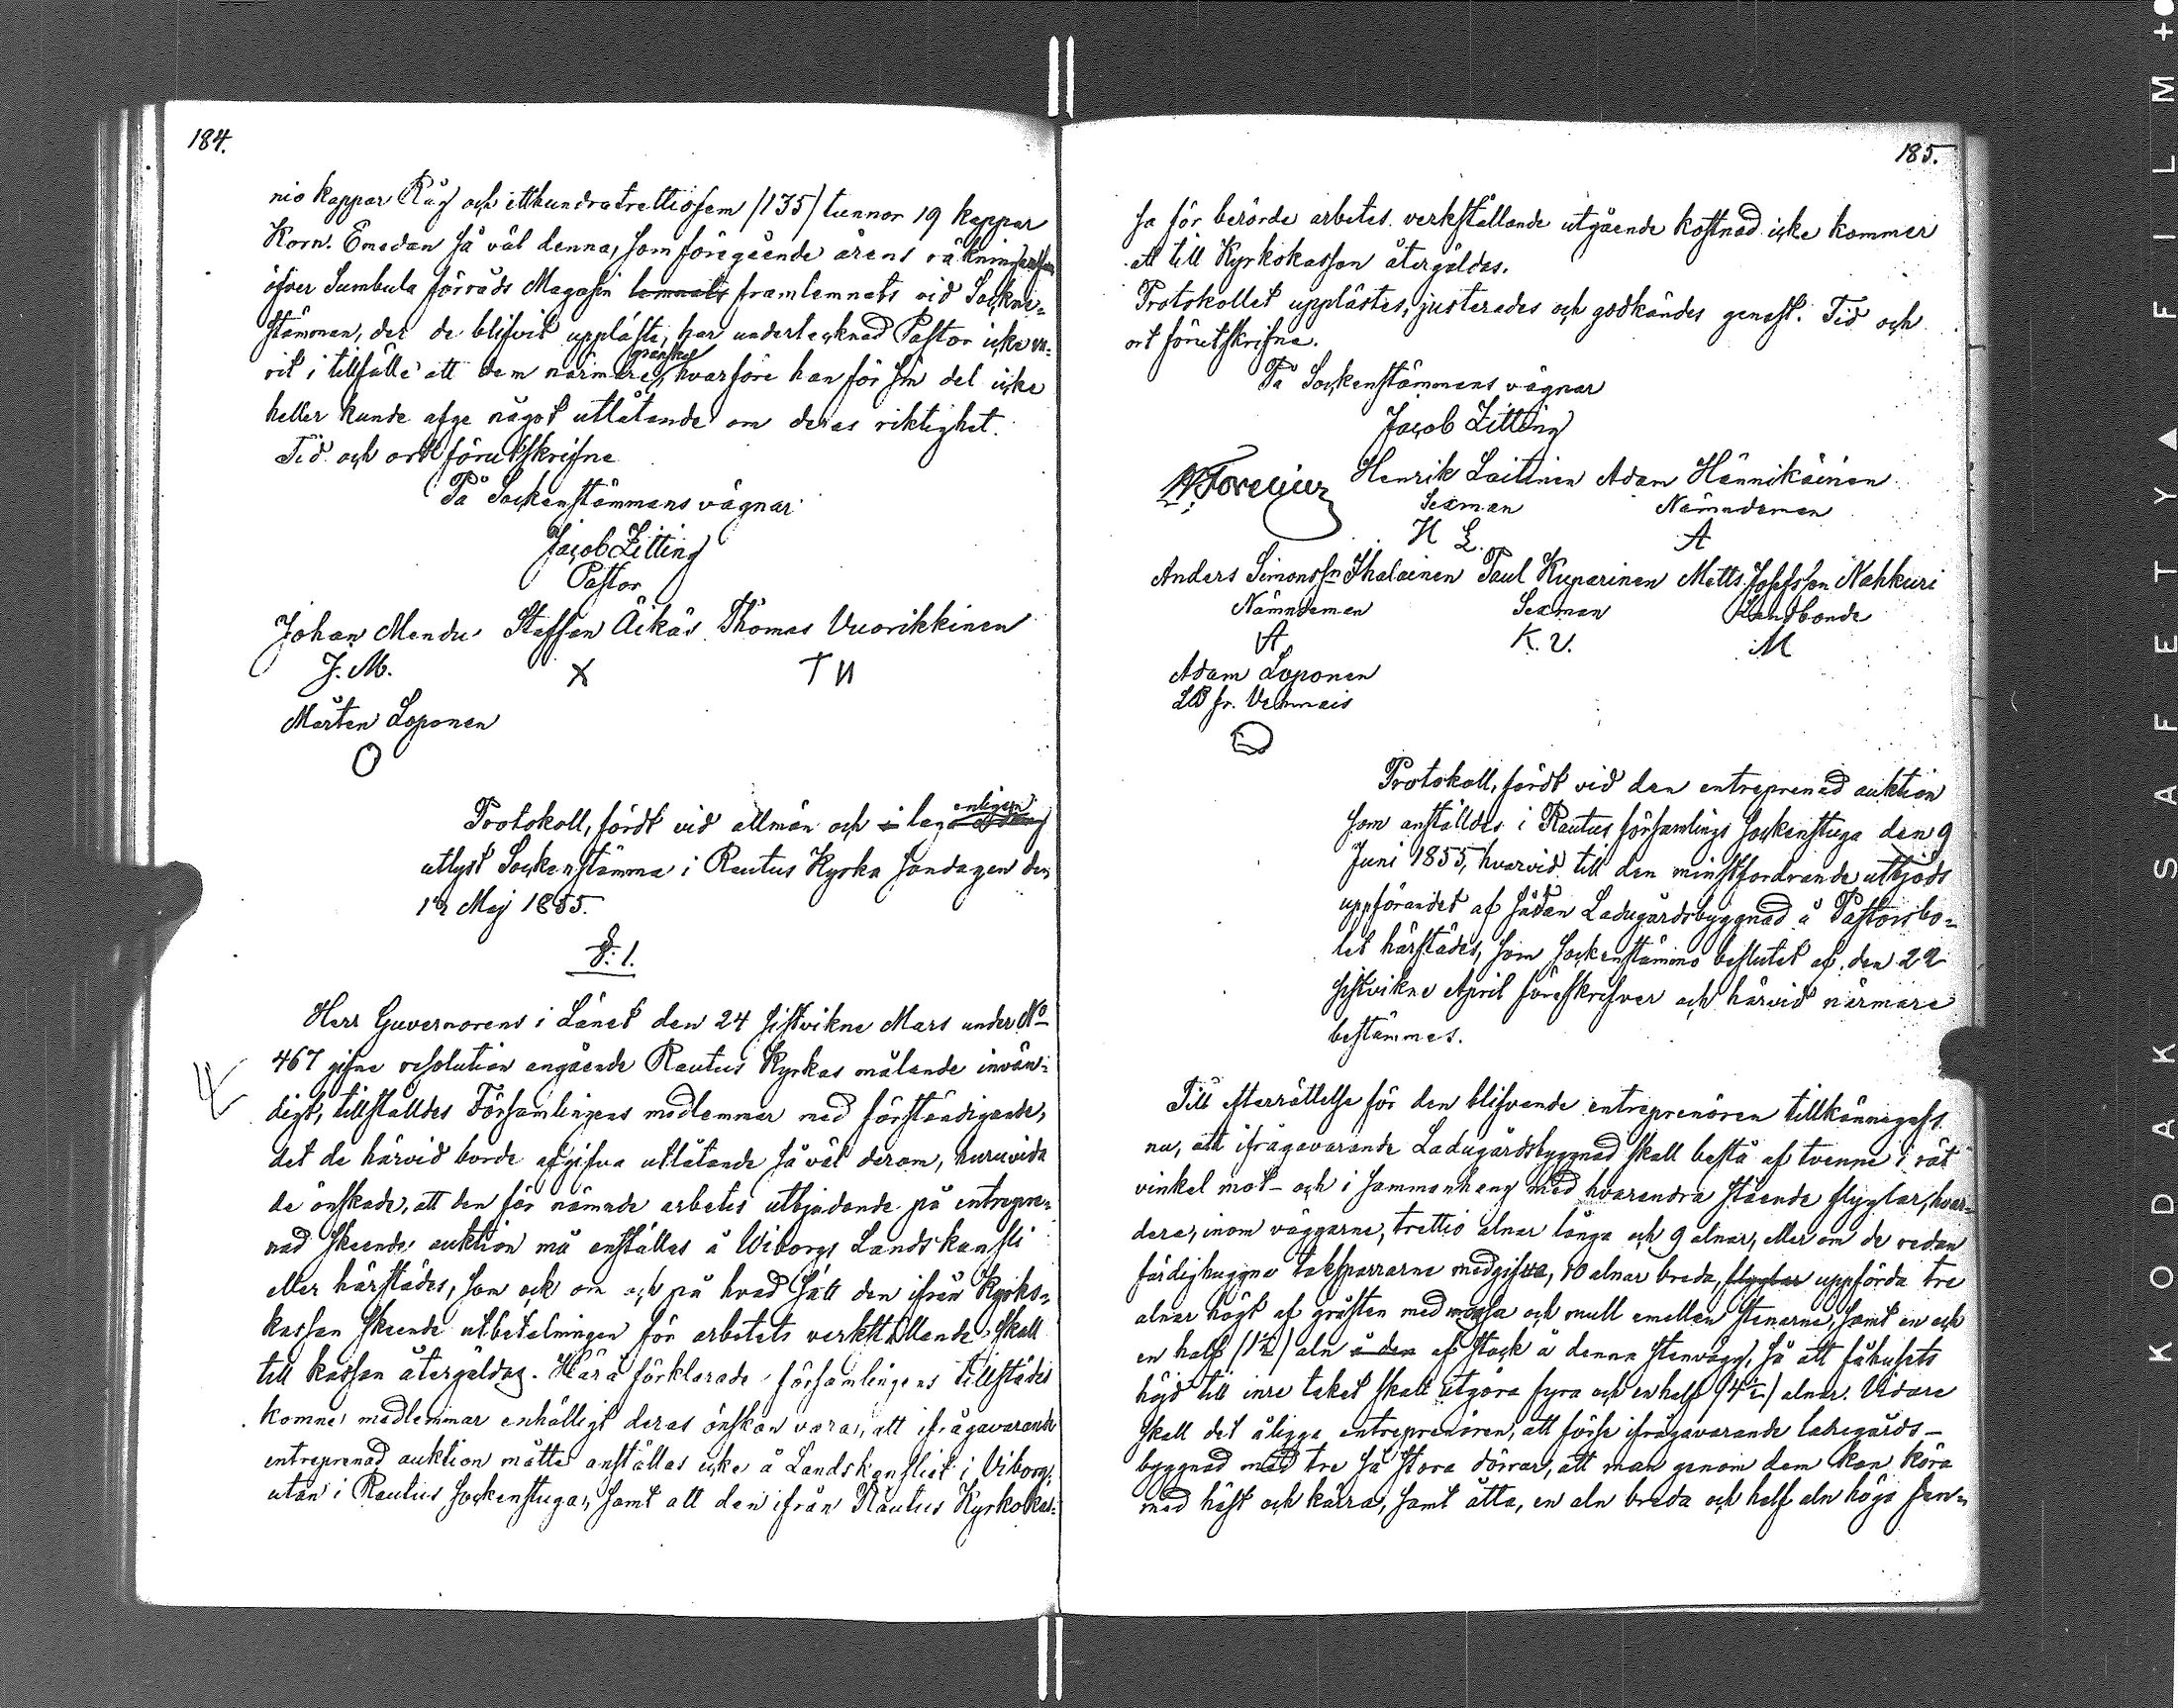 184.
nio kappar Råg och etthundratrettiofem /135/ tunnor 19 kappar
Korn. Emedan så väl denna, som föregående årens räkningar
öfver Sumbula förråds Magasin lemnats framlemnats vid Sockne-
stämman, der de blifvit uppläste, har undertecknad Pastor icke va-
granska
rit i tillfälle att dem närmare, hvarföre han för sin del icke
heller kunde afge något utlåtande om deras riktighet.
Tid och ort förutskrifne
På Sockenstämmans vägnar
Jacob Zitting
Pastor
Johan Mendu Staffan Äikäs Thomas Vuorikkinen
J. M. X T U
Mårten Loponen
O
enligen
Protokoll, fördt vid allmän och i lag
utlyst Sockenstämma i Rautus Kyrka Söndagen den
Maj 1855.
§: 1.
Herr Guvernorens i Länet den 24 sistvikne Mars under No
467 gifne resolution angående Rautus Kyrkas målande invän-
digt, tillställdes Församlingens medlemmar med förständigande,
det de härvid borde afgifva utlåtande så väl derom, huruvida
de önskade, att den för nämnde arbetes utbjudande på entrepre-
nad skeende auktion må anställas å Wiborgs Landskansli
eller härstädes, som ock om och på hvad sätt den ifrån Kyrko-
kassan skeende utbetalningen för arbetets verkställande skall
till kassan återgäldas. Härå förklarade församlingens tillstädes
komne medlemmar enhälligt deras önskan vara, att ifrågavarande
entreprenad auktion måtte anställas icke å Landskansliet i Viborg,
utan i Rautus Sockenstuga, samt att den ifrån Rautus Kyrkokas-
185.
sa för berörde arbetes verkställande utgående kostnad icke kommer
att till Kyrkokassan återgäldas.
Protokollet upplästes, justerades och godkändes genast. Tid och
ort förutskrifne.
På Sockenstämmans vägnar
Jacob Zitting
Henrik Laitinen Adam Hännikäinen
Sexman Nämndeman
H L. A
Anders Simonssn Ihalainen Paul Kuparinen Matts Josefsson Nahkuri
Nämndeman Sexman Landbonde
A K. U. M
Adam Loponen
LB fr. Vehmais
Protokoll, fördt vid den entreprenad auktion
som anställdes i Rautus församlings sockenstuga den 9
Juni 1855, hvarvid till den minstfordrande utbjöds
uppförandet af sådan Ladugårdsbyggnad å Pastorsbo-
let härstädes, som sockenstämmo beslutet af den 22
sistvikne April föreskrifver och härvid närmare
bestämmes.
Till efterrättelse för den blifvande entreprenören tillkännagafs
nu, att ifrågavarande Ladugårdsbyggnad skall bestå af tvenne i rät
vinkel mot- och i sammanhang med hvarandra stående flyglar, hvar-
dera, inom väggarne, trettio alnar långa och 9 alnar, eller om de redan
färdighuggna taksparrarne medgifva, 10 alnar breda, flyglar uppförda tre
alnar högt af gråsten med mossa och mull emellan stenarne, samt en och
en half /1½/ aln å den af stock å denna stenvägg, så att fähusets
höjd till inre taket skall utgöra fyra och en half /4½/ alnar. Vidare
skall det åligga entreprenören, att förse ifrågavarande ladugårds-
byggnad med tre så stora dörrar, att man genom dem kan köra
med häst och kärra, samt åtta, en aln breda och half aln höga fen-
KODAK SAFETY FILM